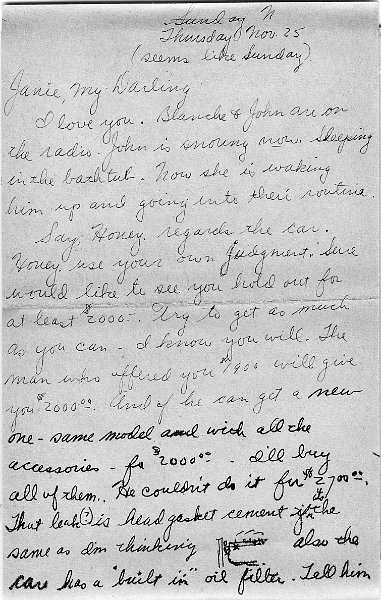 Sunday N
Thursday Nov. 25
(seems like Sunday)
Janie, My Darling:
I love you. Blanche & John are on
the radio. John is snoring now. Sleeping
in the bathtub. Now she is waking
him up and going into their routine.
Say, Honey, regards the car.
Honey use your own judgment. Sure
would like to see you hold out for
at least $2000–. Try to get as much
as you can – I know you will. The
man who offered you $1900 will give
you $2000.00. And if he can get a new
one – same model and with all the
accessories – for $2000.00 – I'll buy
all of them. He couldn't do it for $2700.00.
That leak(?) is head gasket cement if the
same as I'm thinking also the
care has a "built in" oil filter. Tell him